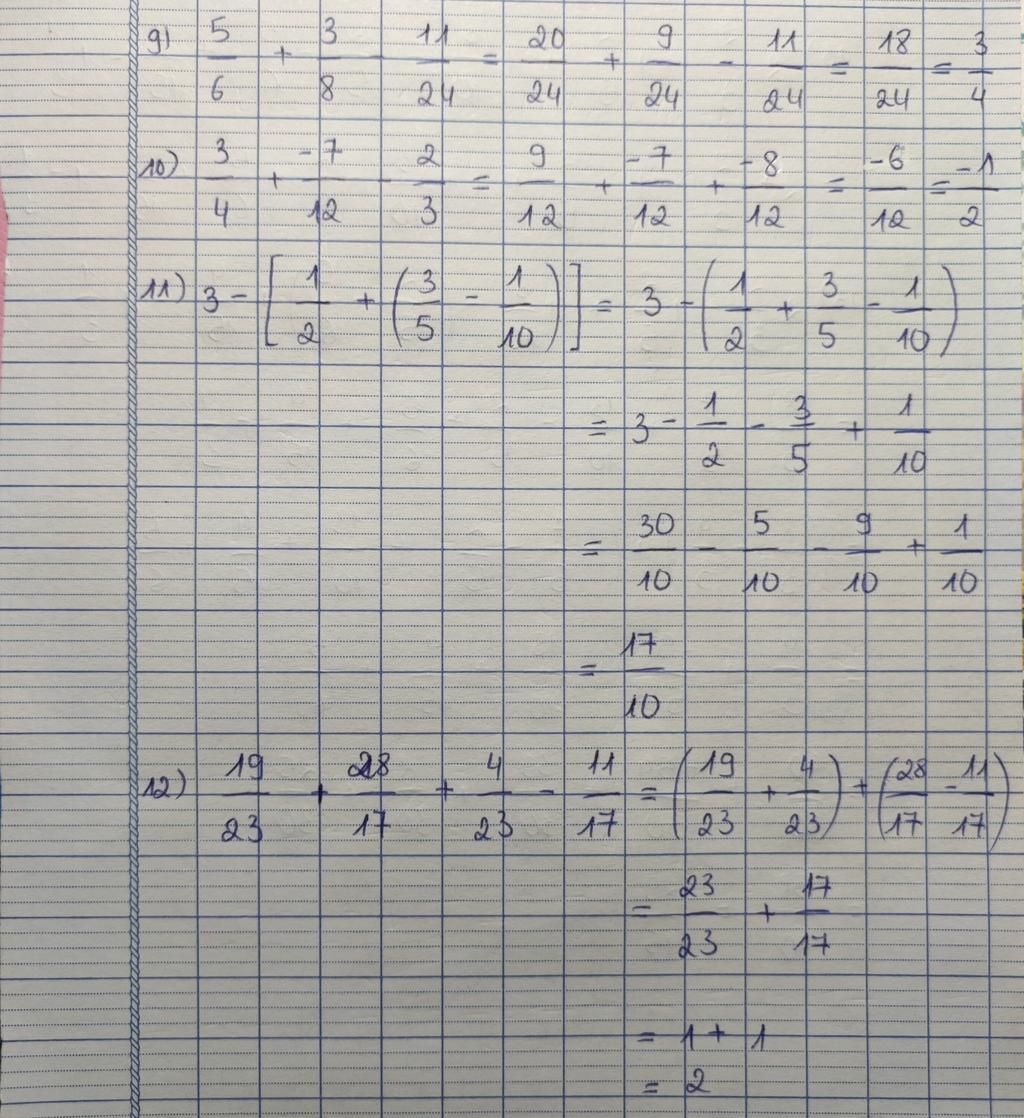 9) 5/6 + 3/8 - 11/24 = 20/24 + 9/24 - 11/24 = 18/24 = 3/4
10) 3/4 + -7/12 - 2/3 = 9/12 + -7/12 + -8/12 = -6/12 = -1/2
11) 3 - [1/2 + (3/5 - 1/10)] = 3 - (1/2 + 3/5 - 1/10)
= 3 - 1/2 - 3/5 + 1/10
= 30/10 - 5/10 - 9/10 + 1/10
= 17/10
12) 19/23 + 28/17 + 4/23 - 11/17 = (19/23 + 4/23) + (28/17 - 11/17)
= 23/23 + 17/17
= 1 + 1
= 2